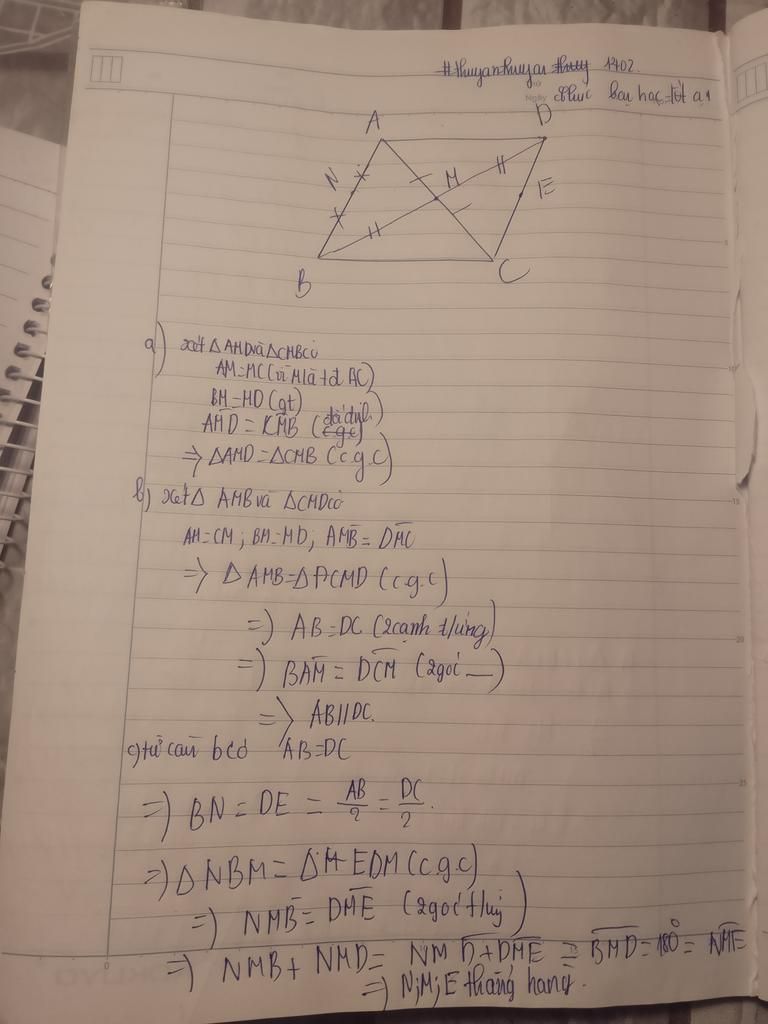 #thuyanthuyan thuy 1402.
Ngày chúc bạn học tốt ạ!
A
D
N
M
E
B
C
a) xét Δ AMD và ΔCMB có
AM=MC (vì M là tđ AC)
BM=MD (gt)
AMD = CMB (đối đỉnh)
⇒ ΔAMD = ΔCMB (c.g.c)
b) xét Δ AMB và ΔCMD có
AM=CM ; BM=MD; AMB = DMC
⇒ Δ AMB=Δ CMD (c.g.c)
⇒ AB=DC (2 cạnh t/ứng)
⇒ BAM = DCM (2 góc —)
⇒ AB//DC.
c) từ câu b có AB=DC
⇒ BN = DE = AB/2 = DC/2.
⇒ Δ NBM = Δ EDM (c.g.c)
⇒ NMB = DME (2 góc t/ứ)
⇒ NMB + NMD = NMD + DME = BMD = 180° = NME
⇒ N;M;E thẳng hàng.